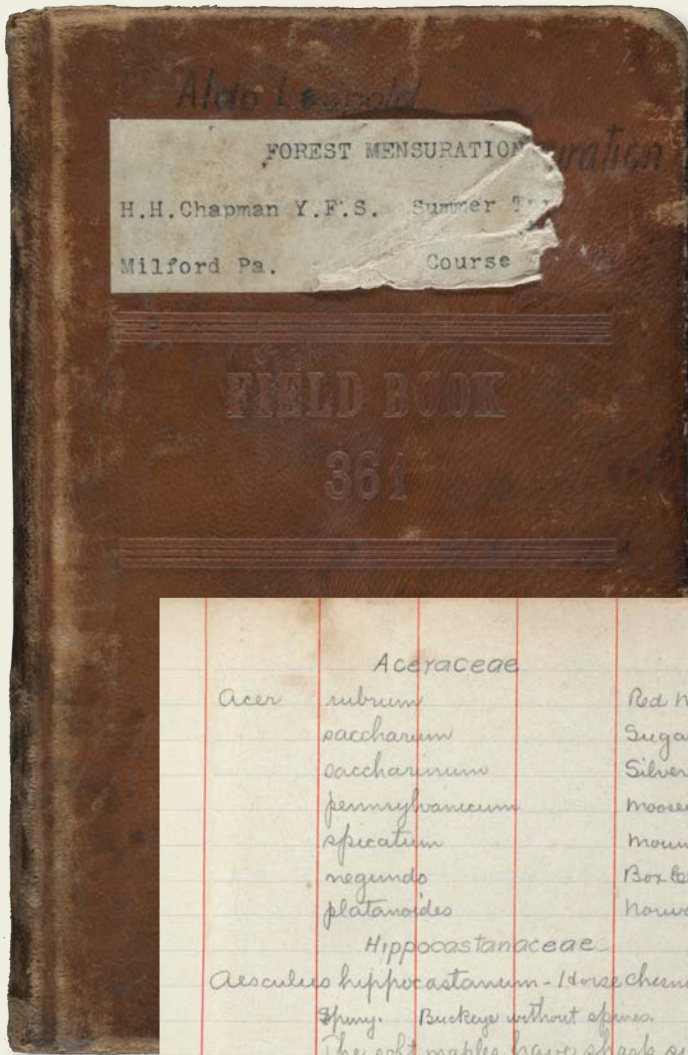 Aldo Leopold
FOREST MENSURATION
H.H.Chapman Y.F.S. Summer
Milford Pa. Course
FIELD BOOK
361
Aceraceae
Acer rubrum Red
saccharum Suga
saccharinum Silver
pennsylvanicum moose
spicatum moun
negundo Box
platanoides norw
Hippocastanaceae
Aesculus hippocastanum - Horse chesn
Spiny. Buckeye without spines.
The soft maples have